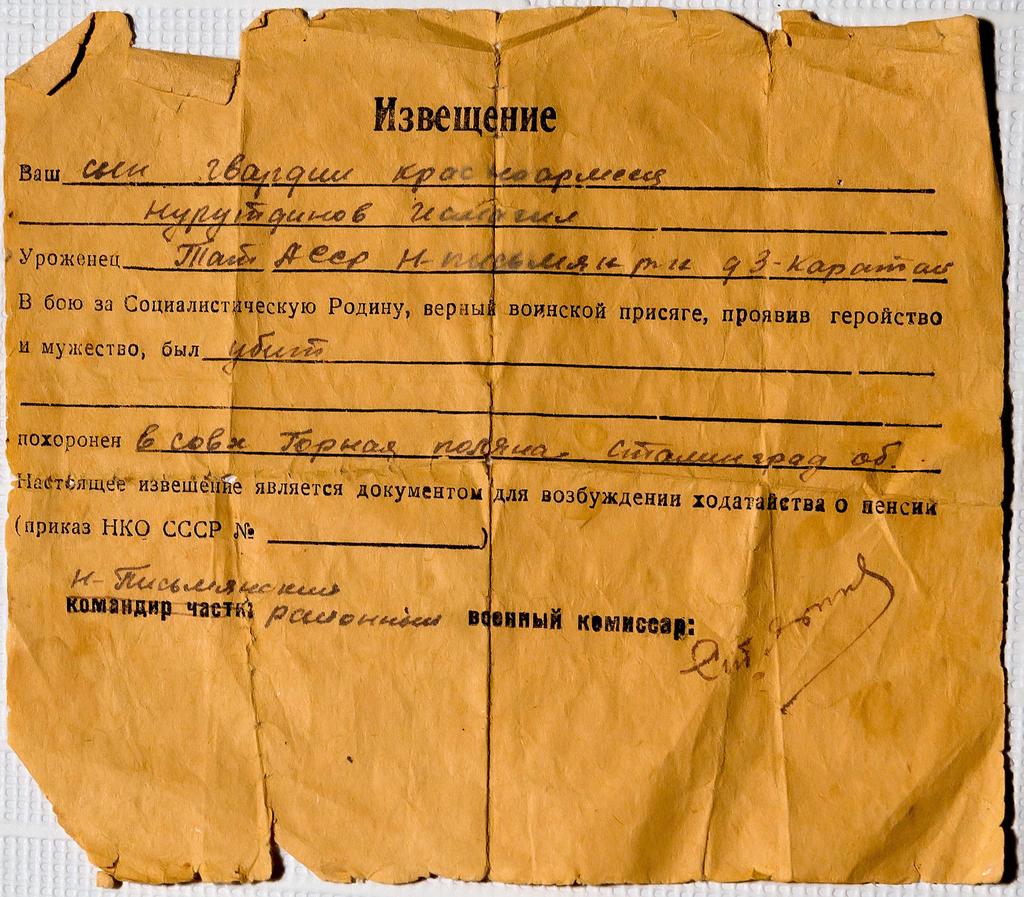 Извещение
Ваш сын гвардии красноармеец
Нурутдинов Исмагил
Уроженец Тат АССР Н-письмян р-н д З-Каратай
В бою за Социалистическую Родину, верный воинской присяге, проявив геройство
и мужество, был убит
похоронен в совх Горная поляна. Сталинград об.
Настоящее извешение является документом для возбуждении ходатайства о пенсии
(приказ НКО СССР № )
Н-Письмянский
командир части районный военный комиссар: